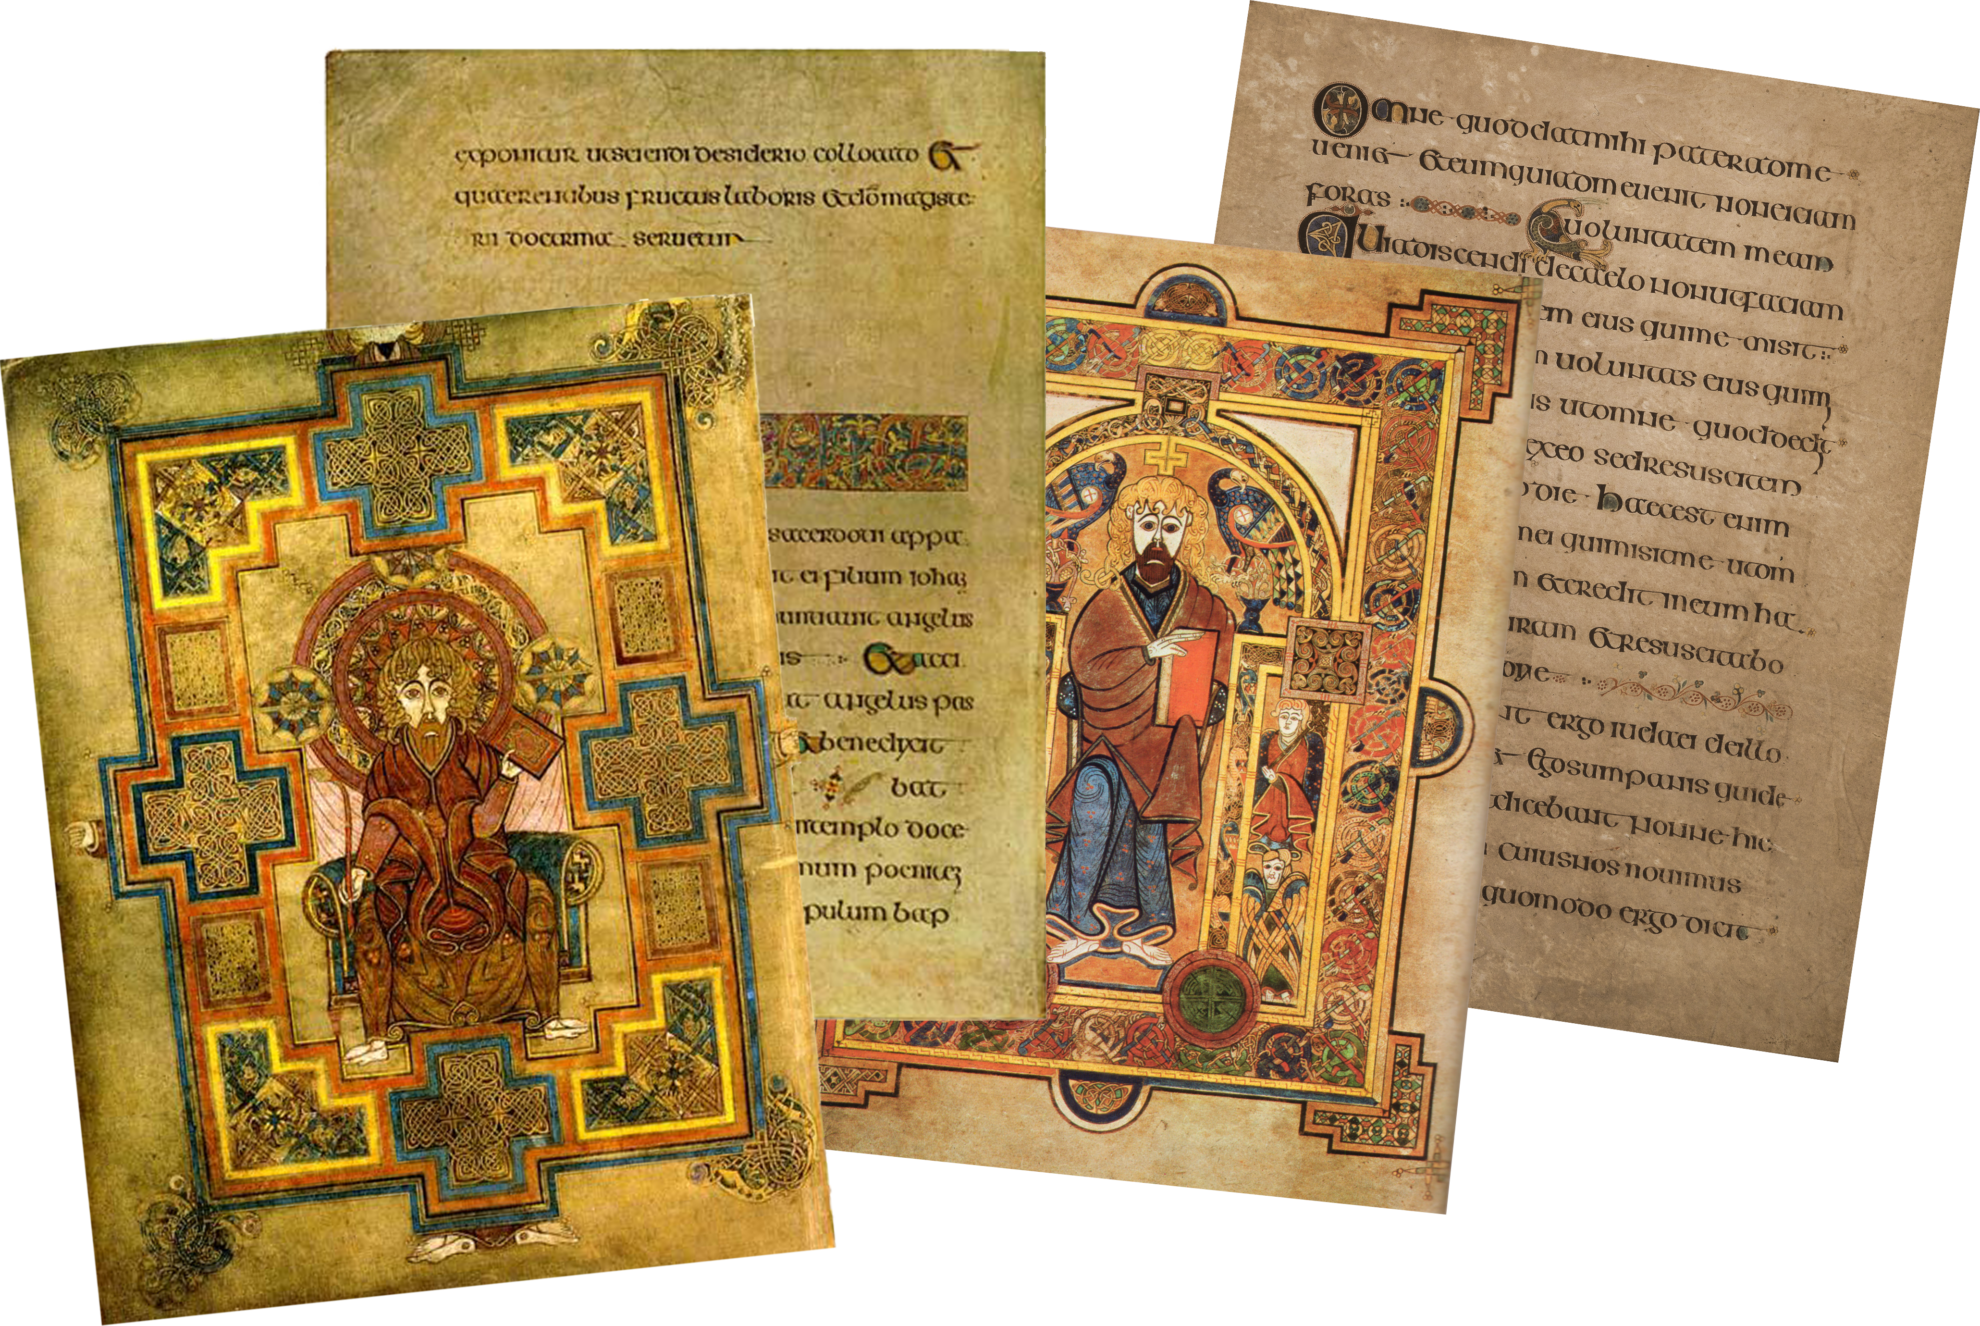 exponitur ut sciendi desiderio collocato Et
quaerentibus fructus laboris Et dō magiste
rii doctrina seruetur
sacerdoti appa
it ei filium
nuntiauit angelus
is Et acci
it angelus pas
benedixit
bat
templo doce
num
pulum bap
Omne quod dat mihi pater ad me
uenit Et eum qui ad me uenit non eiciam
foras uoluntatem meam
Quia discendi de caelo non ut faciam
em eius qui me misit
uoluntas eius qui m
is ut omne quod dedit
ex eo sed resuscitem
die haec est enim
mei qui misit me ut om
Et credit in eum ha
Et resuscitabo
it ergo iudaei de illo
Ego sum panis qui de
dicebant nonne hic
cuius nos nouimus
quomodo ergo dicit